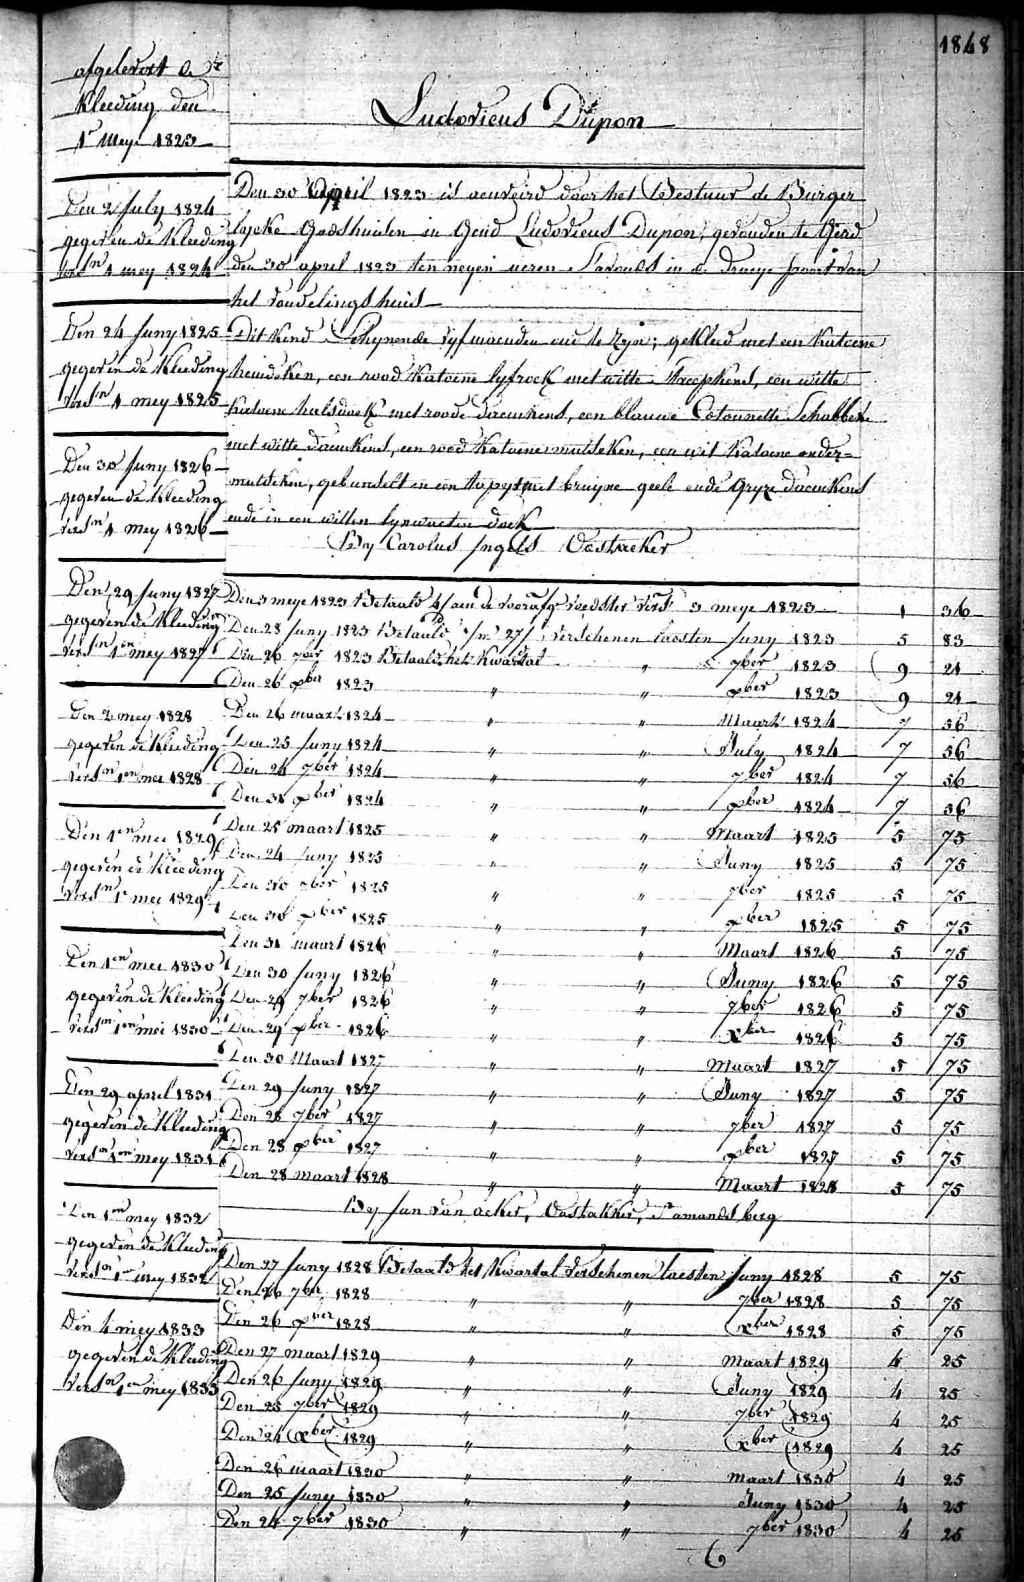 1848
afgelevert de
Kleeding den
1r Meye 1823
Ludovicus Dupon
Den 30 April 1823 is aenveird door het Bestuur de Burger
lyke Godshuisen in Gend Ludovicus Dupon, gevonden te Gend
den 30 april 1823 ten negen ueren s'avonds in de draeye poort van
het vondelingshuis
Dit kind schynende vyf maenden oud te zyn; gekleed met een katoene
hemdeken, een rood katoene lyfrock met witte streepkens, een witte
katoene halsdoek met roode daeukens, een blauwe Cotonnette Schabbe
met witte daeukens, een rood katoene mutsken, een wit katoene onder-
mutsken, gebundelt in een tapyt met bruyne geele ende gryze daeukens
ende in een witten lynwaeten doek
By Carolus Ingels Oostacker
Den 2 July 1824
gegeven de Kleeding
versn 1 mey 1824
Den 24 Juny 1825
gegeven de Kleeding
versn 1 mey 1825
Den 30 Juny 1826
gegeven de Kleeding
versn 1 mey 1826
Den 29 Juny 1827
gegeven de Kleeding
versn 1en mey 1827
Den 2 mey 1828
gegeven de Kleeding
versn 1en mei 1828
Den 1en mei 1829
gegeven de Kleeding
versn 1e mei 1829
Den 1en mei 1830
gegeven de Kleeding
versn 1en mei 1830
Den 29 april 1831
gegeven de Kleeding
versn 1en mey 1831
Den 1en mey 1832
gegeven de Kleeding
versn 1en mey 1832
Den 4 mey 1833
gegeven de Kleeding
versn 1en mey 1833
Den 3 meye 1823 Betaald aen de voorafge voedster vers 3 meye 1823 1 36
Den 28 Juny 1823 Betaald verschenen laesten Juny 1823 5 83
Den 26 7ber 1823 Betaald het Kwartal " 7ber 1823 9 21
Den 26 xber 1823 " " xber 1823 9 21
Den 26 maart 1824 " " Maart 1824 7 36
Den 25 Juny 1824 " " July 1824 7 36
Den 24 7ber 1824 " " 7ber 1824 7 36
Den 31 xber 1824 " " xber 1824 7 36
Den 25 maart 1825 " " Maart 1825 5 75
Den 24 Juny 1825 " " Juny 1825 5 75
Den 30 7ber 1825 " " 7ber 1825 5 75
Den 30 xber 1825 " " xber 1825 5 75
Den 31 maart 1826 " " Maart 1826 5 75
Den 30 Juny 1826 " " Juny 1826 5 75
Den 29 7ber 1826 " " 7ber 1826 5 75
Den 29 xber 1826 " " xber 1826 5 75
Den 30 Maart 1827 " " Maart 1827 5 75
Den 29 Juny 1827 " " Juny 1827 5 75
Den 28 7ber 1827 " " 7ber 1827 5 75
Den 28 xber 1827 " " xber 1827 5 75
Den 28 maart 1828 " " Maart 1828 5 75
Bey Jan van acker, Oostakker, St amandsberg
Den 27 Juny 1828 Betaald het Kwartal verschenen laesten Juny 1828 5 75
Den 26 7ber 1828 " " 7ber 1828 5 75
Den 26 xber 1828 " " xber 1828 5 75
Den 27 maart 1829 " " maart 1829 4 25
Den 26 Juny 1829 " " Juny 1829 4 25
Den 25 7ber 1829 " " 7ber 1829 4 25
Den 24 xber 1829 " " xber 1829 4 25
Den 26 maart 1830 " " maart 1830 4 25
Den 25 Juny 1830 " " Juny 1830 4 25
Den 24 7ber 1830 " " 7ber 1830 4 25